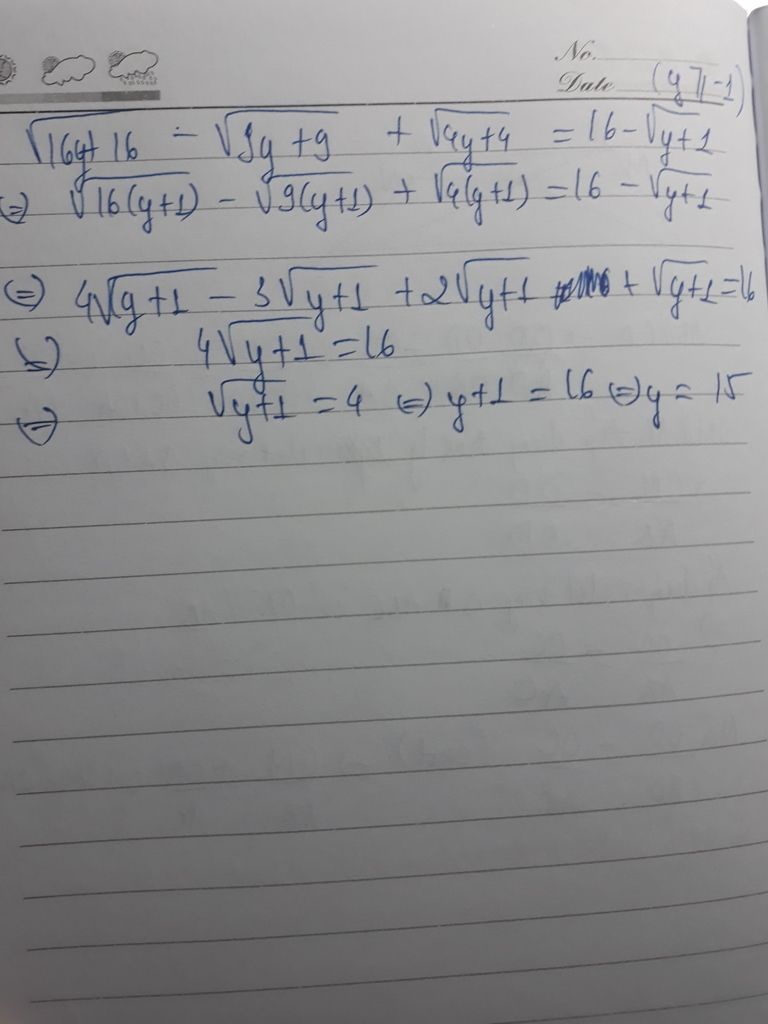 No.
Date (y ⩾ -1)
√16y+16 - √9y+9 + √4y+4 = 16 - √y+1
⇔ √16(y+1) - √9(y+1) + √4(y+1) = 16 - √y+1
⇔ 4√y+1 - 3√y+1 + 2√y+1 + √y+1 = 16
⇔ 4√y+1 = 16
⇔ √y+1 = 4 ⇔ y+1 = 16 ⇔ y = 15